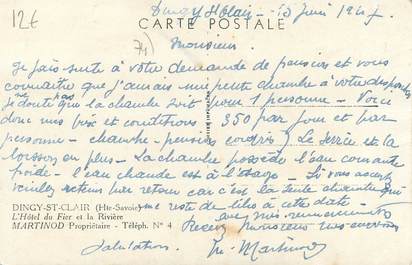 12€
Dingy St Clair - 15 Juin 1947
CARTE POSTALE
74)
Monsieur
Je fais suite à votre demande de pension et vous
connaître que j'aurais une petite chambre à votre disposition
je doute pas que la chambre soit pour 1 personne - Voici
donc mes prix et conditions - 350 par jour et par
personne - chambre - pension compris) Le service et la
boisson en plus - La chambre possède l'eau courante
froide - l'eau chaude est à l'étage - Si vous acceptez
veuillez retenir par retour car c'est la seule chambre qui
DINGY-ST-CLAIR (Hte-Savoie)
me reste de libre à cette date -
L'Hôtel du Fier et la Rivière
avec mes remerciements
MARTINOD Propriétaire - Téléph. N° 4
Recevez Monsieur mes
salutations
Me Martinod